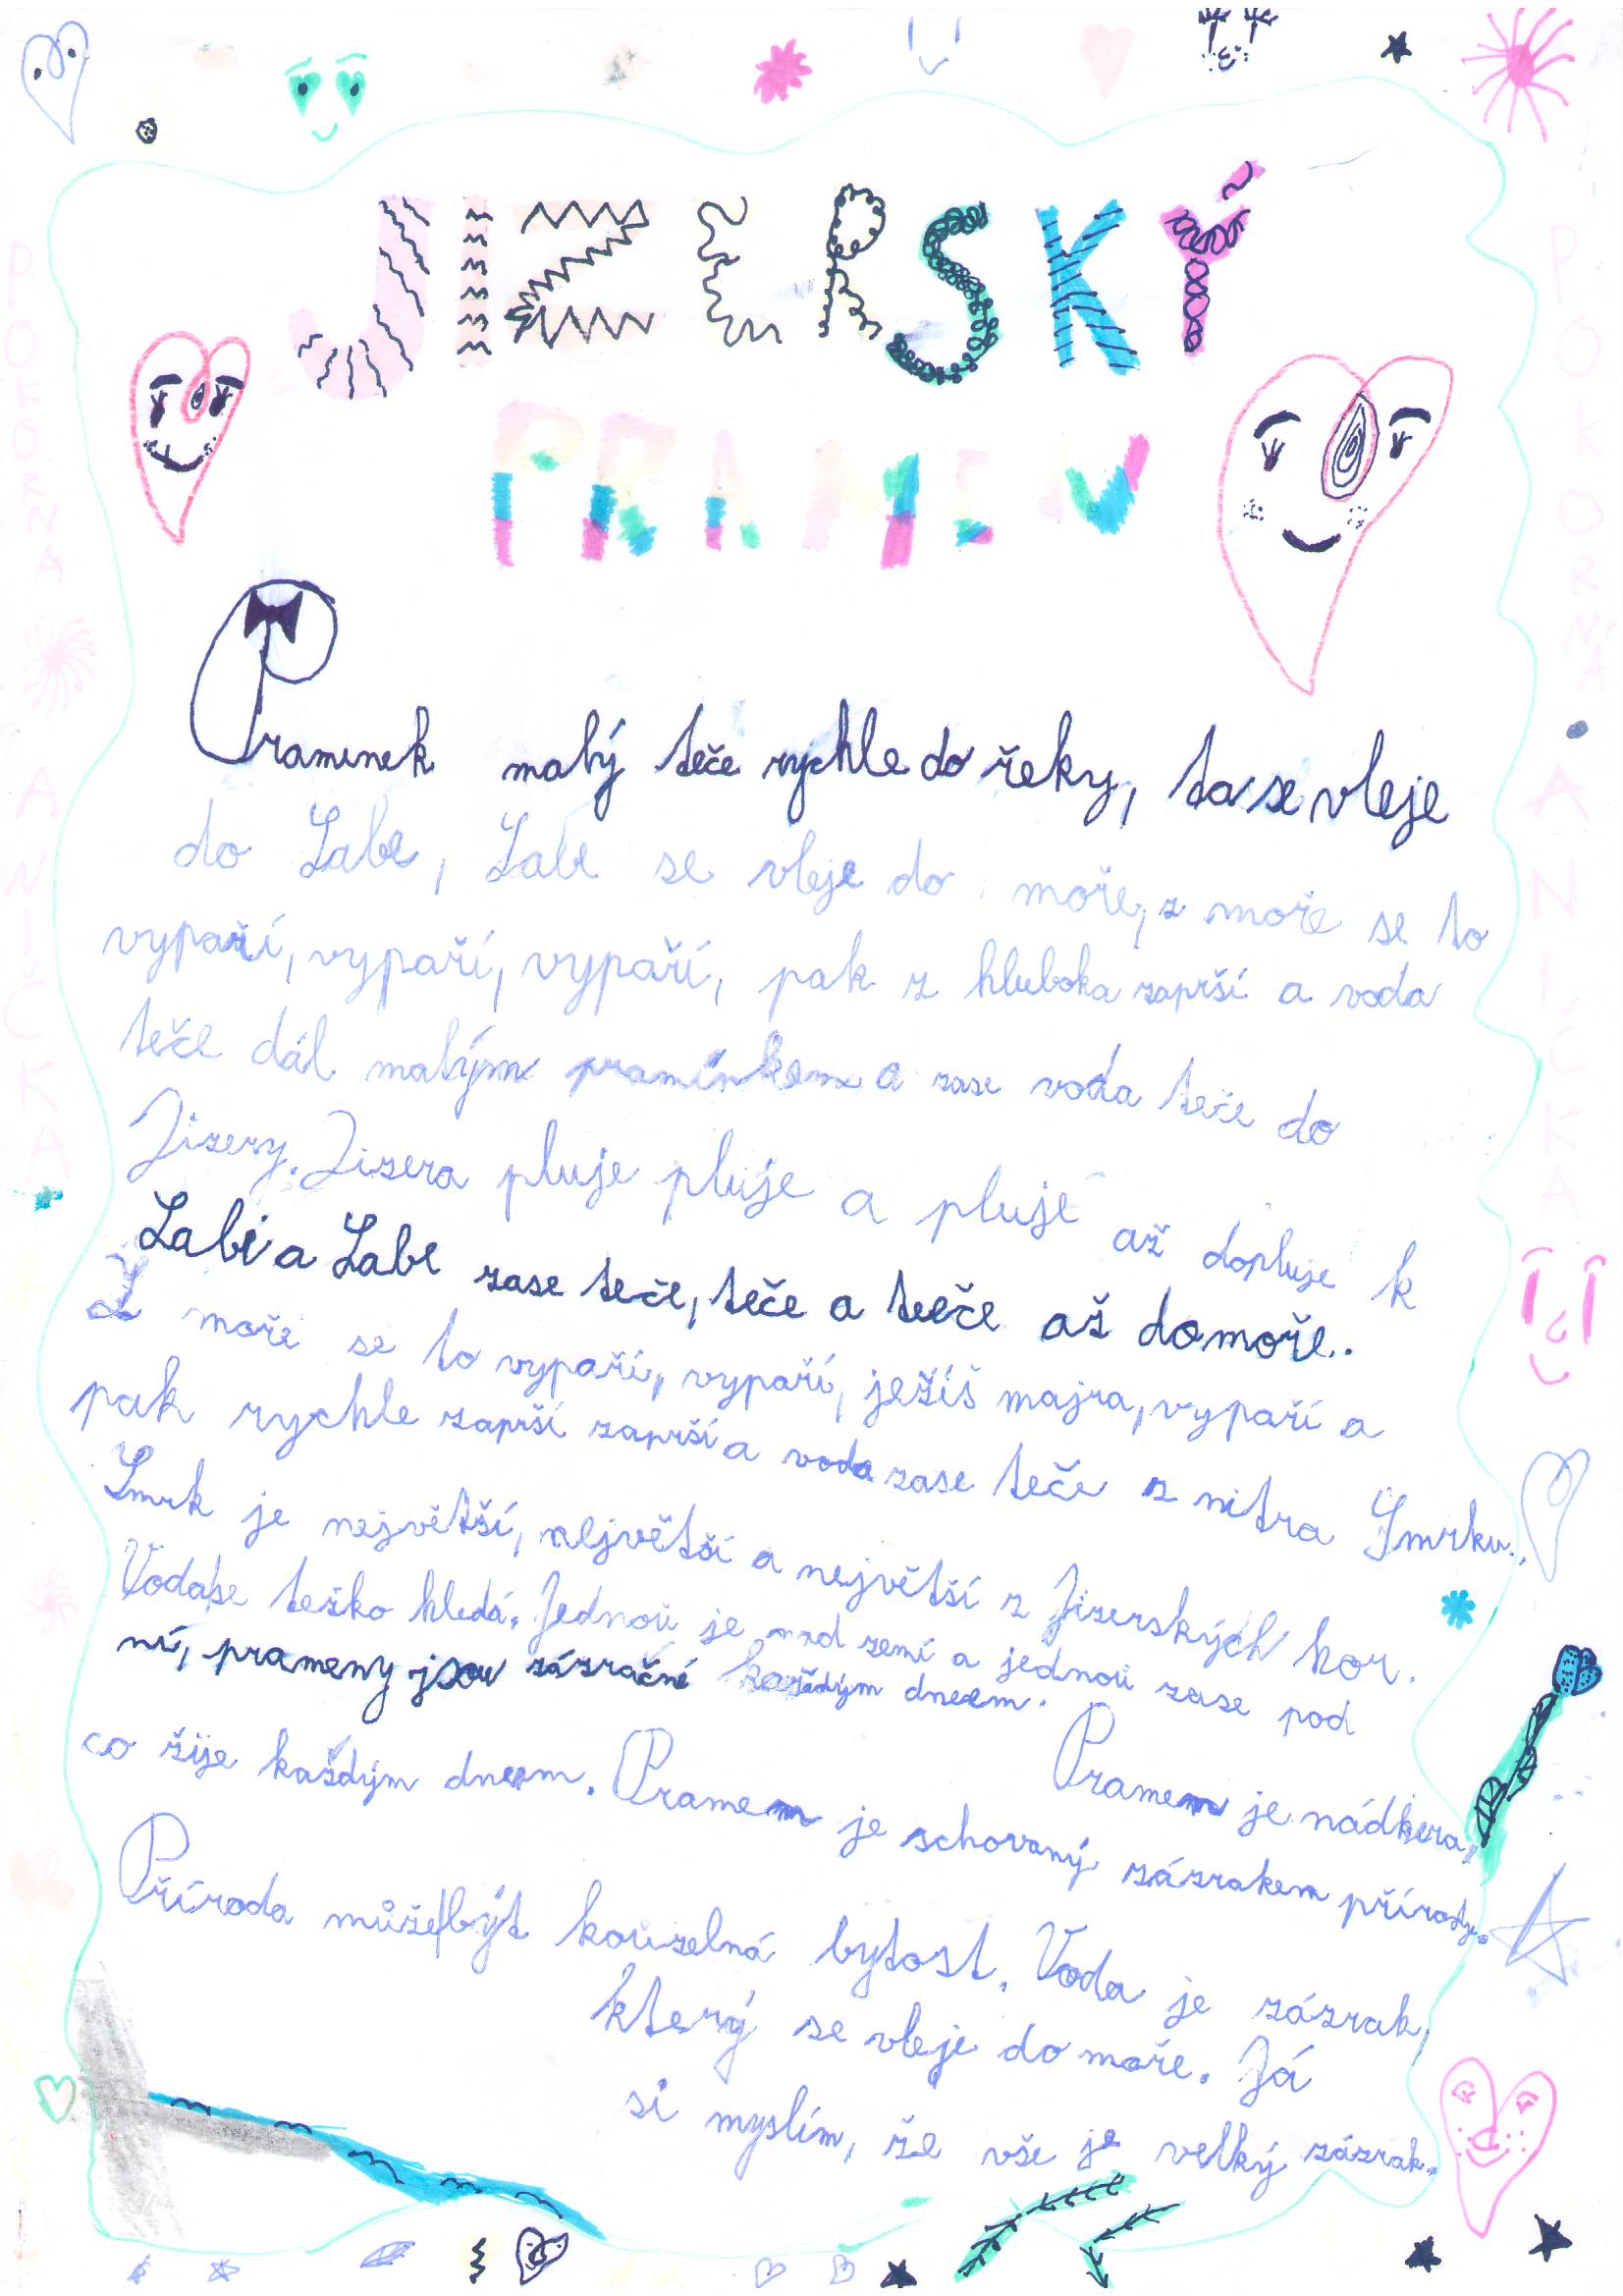 JIZERSKÝ
PRAMEN
Pramínek malý teče rychle do řeky, ta se vleje
do Labe, Labe se vleje do moře, z moře se to
vypaří, vypaří, vypaří, pak z hluboka zaprší a voda
teče dál malým pramínkem a zase voda teče do
Jizery. Jizera pluje pluje a pluje až dopluje k
Labi a Labe zase teče, teče a teče až do moře.
Z moře se to vypaří, vypaří, ježíš majra, vypaří a
pak rychle zaprší zaprší a voda zase teče z nitra Smrku.
Smrk je největší, největší a největší z Jizerských hor.
Voda se težko hledá. Jednou je nad zemí a jednou zase pod
ní, prameny jsou zázračné každým dnem.
Pramen je nádhera,
co žije každým dnem. Pramen je schovaný zázrakem přírody.
Příroda může být kouzelná bytost. Voda je zázrak,
který se vleje do moře. Já
si myslím, že vše je velký zázrak.
POKORNÁ ANIČKA
POKORNÁ ANIČKA